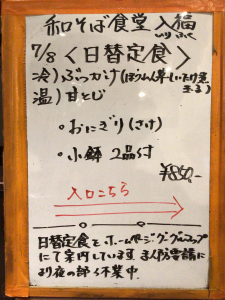 和そば食堂 入福
いり ふく
7/8〈日替定食〉
冷)ぶっかけ(ほうれん草・しいたけ煮
玉子)
温)甘とじ
・おにぎり(さけ)
・小鉢 2品付
¥850,-
入口こちら
日替定食をホームページ・グーグルマップ
にて案内しています。
より夜の部休業中